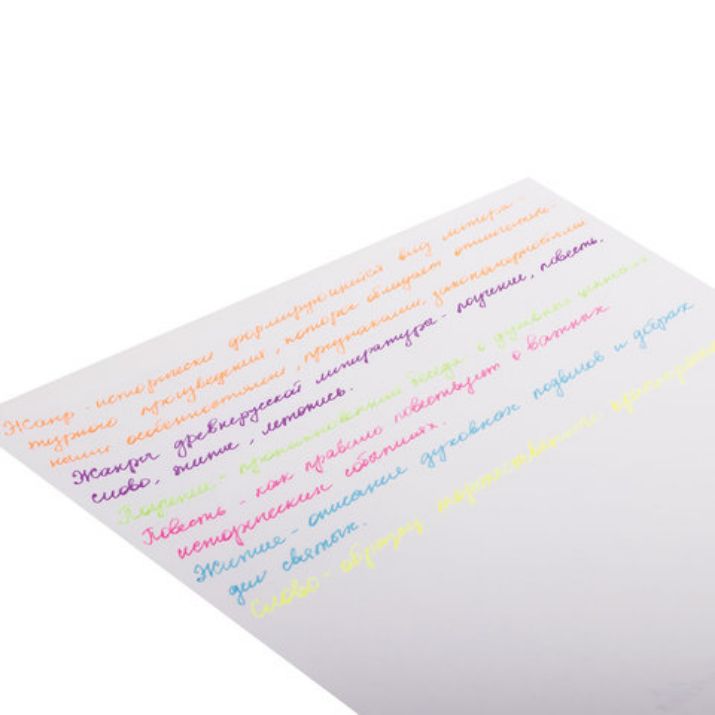 Жанр - исторически формирующийся вид литера-
турного произведения, которое обладает отличитель-
ными особенностями, признаками, закономерностями
Жанры древнерусской литературы - поучение, повесть,
слово, житие, летопись.
Поучение - беседа о духовных
Повесть - как правило повествует о важных
исторических событиях.
Житие - описание духовных подвигов и добрых
дел святых.
Слово - образец